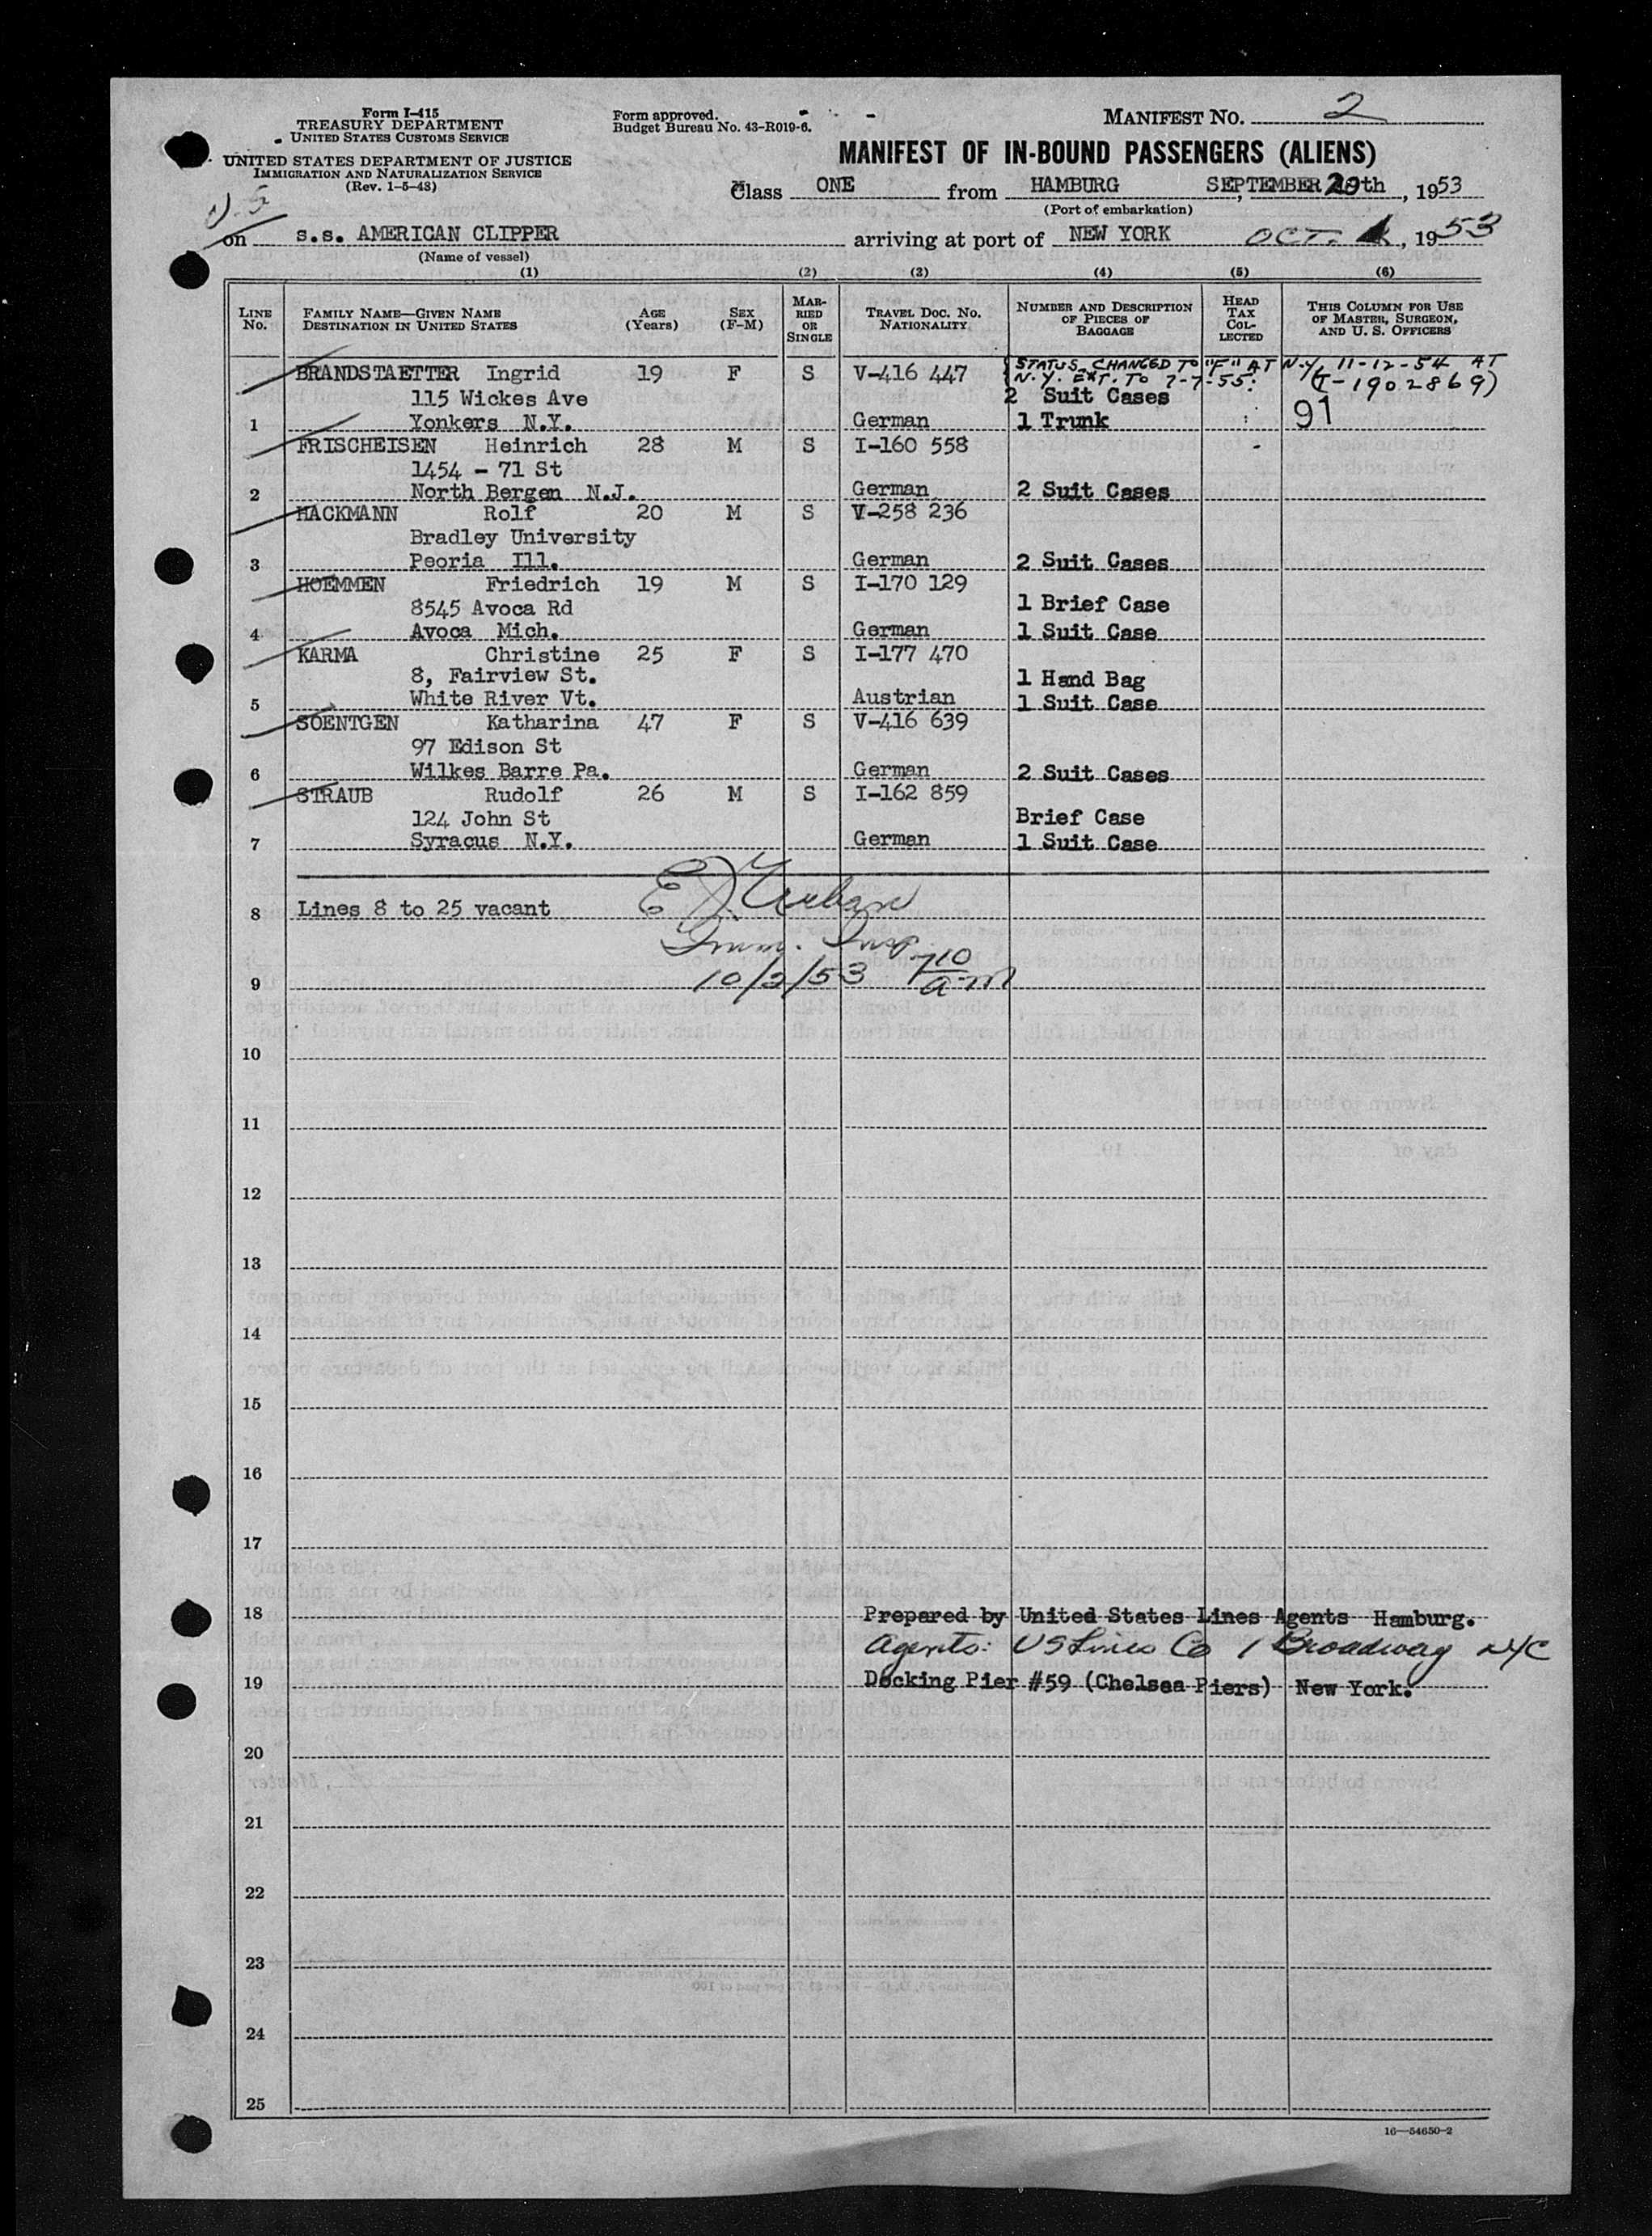 Form I-415
TREASURY DEPARTMENT
UNITED STATES CUSTOMS SERVICE
UNITED STATES DEPARTMENT OF JUSTICE
IMMIGRATION AND NATURALIZATION SERVICE
(Rev. 1-5-48)
Form approved.
Budget Bureau No. 43-R019-6.
MANIFEST NO. 2
MANIFEST OF IN-BOUND PASSENGERS (ALIENS)
Class ONE from HAMBURG, SEPTEMBER 20th, 1953
(Port of embarkation)
on s.s. AMERICAN CLIPPER arriving at port of NEW YORK OCT. 1, 1953
(Name of vessel)
(1) (2) (3) (4) (5) (6)
LINE No. FAMILY NAME—GIVEN NAME DESTINATION IN UNITED STATES AGE (Years) SEX (F-M) MARRIED OR SINGLE TRAVEL DOC. NO. NATIONALITY NUMBER AND DESCRIPTION OF PIECES OF BAGGAGE HEAD TAX COLLECTED THIS COLUMN FOR USE OF MASTER, SURGEON, AND U. S. OFFICERS
STATUS CHANGED TO "F" AT N.Y. 11-12-54 AT
N.Y. EXT. TO 7-7-55. (T-1902869)
BRANDSTAETTER Ingrid 19 F S V-416 447
115 Wickes Ave 2 Suit Cases
1 Yonkers N.Y. German 1 Trunk 91
FRISCHEISEN Heinrich 28 M S I-160 558
1454 - 71 St
2 North Bergen N.J. German 2 Suit Cases
HACKMANN Rolf 20 M S V-258 236
Bradley University
3 Peoria Ill. German 2 Suit Cases
HOEMMEN Friedrich 19 M S I-170 129
8545 Avoca Rd 1 Brief Case
4 Avoca Mich. German 1 Suit Case
KARMA Christine 25 F S I-177 470
8, Fairview St. 1 Hand Bag
5 White River Vt. Austrian 1 Suit Case
SOENTGEN Katharina 47 F S V-416 639
97 Edison St
6 Wilkes Barre Pa. German 2 Suit Cases
STRAUB Rudolf 26 M S I-162 859
124 John St Brief Case
7 Syracus N.Y. German 1 Suit Case
8 Lines 8 to 25 vacant
Imm. Insp.
9 10/2/53 7 10 a-m
10
11
12
13
14
15
16
17
18 Prepared by United States Lines Agents Hamburg.
Agents: US Lines Co 1 Broadway NYC
19 Docking Pier #59 (Chelsea Piers) New York.
20
21
22
23
24
25
16—54650-2